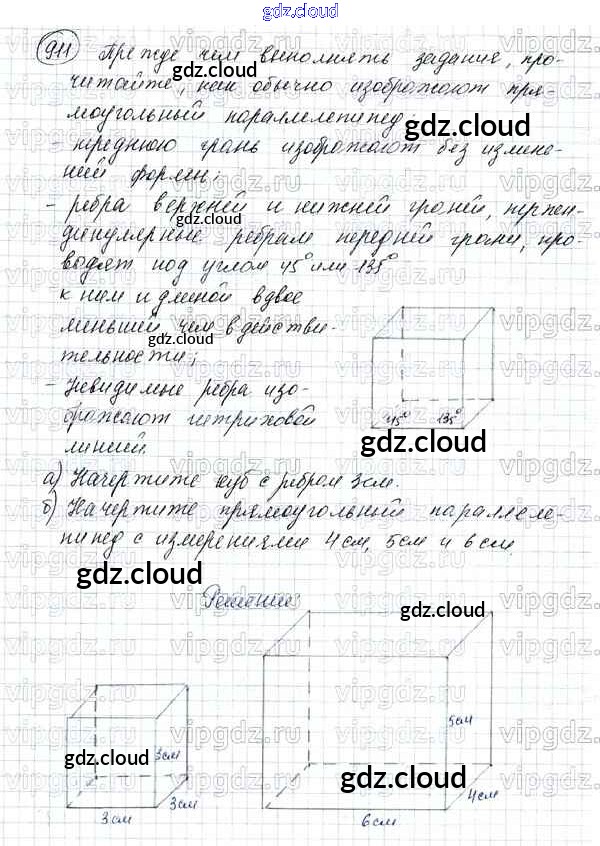 gdz.cloud
911 Прежде чем выполнять задание, про-
читайте, как обычно изображают пря-
моугольный параллелепипед:
- переднюю грань изображают без измене-
ний формы;
- ребра верхней и нижней граней, перпен-
дикулярные ребрам передней грани, про-
водят под углом 45° или 135°
к ним и длиной вдвое
меньшей, чем в действи-
тельности;
- Невидимые ребра изо-
бражают штриховой
линией.
45° 135°
а) Начертите куб с ребром 3 см.
б) Начертите прямоугольный параллеле-
пипед с измерениями 4 см, 5 см и 6 см.
Решение:
5 см
3 см
4 см
3 см
3 см
6 см
gdz.cloud
gdz.cloud
gdz.cloud
gdz.cloud
gdz.cloud
gdz.cloud
gdz.cloud
gdz.cloud
gdz.cloud
gdz.cloud
gdz.cloud
vipgdz.ru